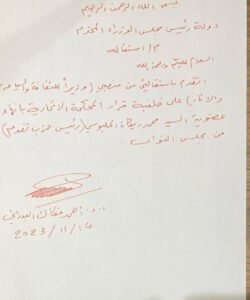 بسم الله الرحمن الرحيم
دولة رئيس مجلس الوزراء المحترم
م/ استقالة
السلام عليكم ورحمة الله
اتقدم باستقالتي من منصبي (وزيراً للثقافة والسياحة
والاثار) على خلفية قرار المحكمة الاتحادية بانهاء
عضوية السيد محمد ريكان الحلبوسي (رئيس حزب تقدم)
من مجلس النواب.
أ.د. أحمد فكاك البدراني
2023/11/14